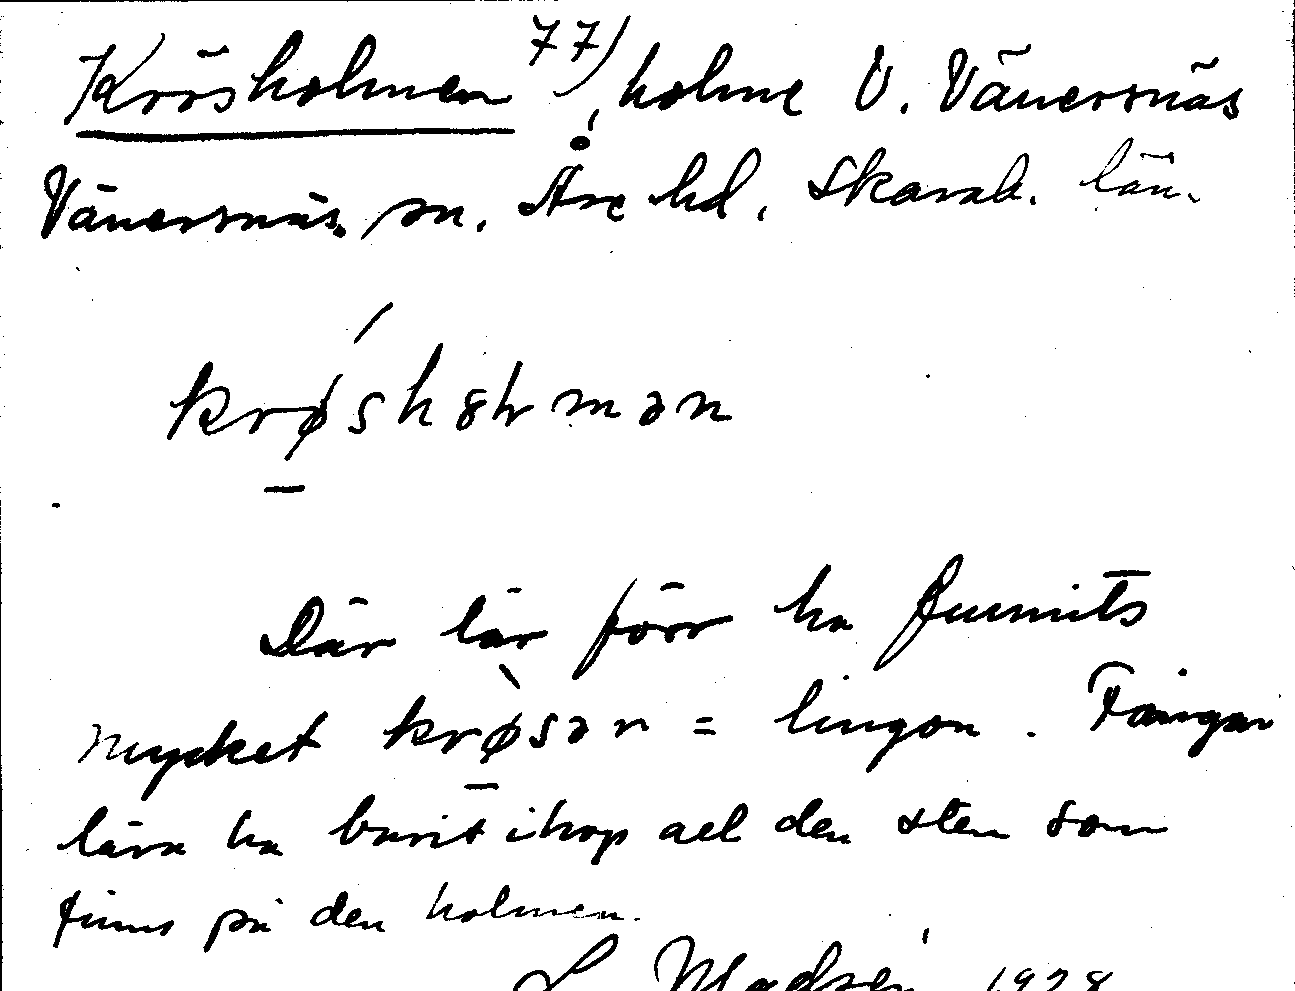 Krösholmen 77) holme V. Vänersnäs
Vänersnäs sn. Åse hd. Skarab. län.
krøshoɫmən
Där lär förr ha funnits
mycket krøsər = lingon. Fångar
lära ha burit ihop all den sten som
finns på den holmen.
L Madsén 1928